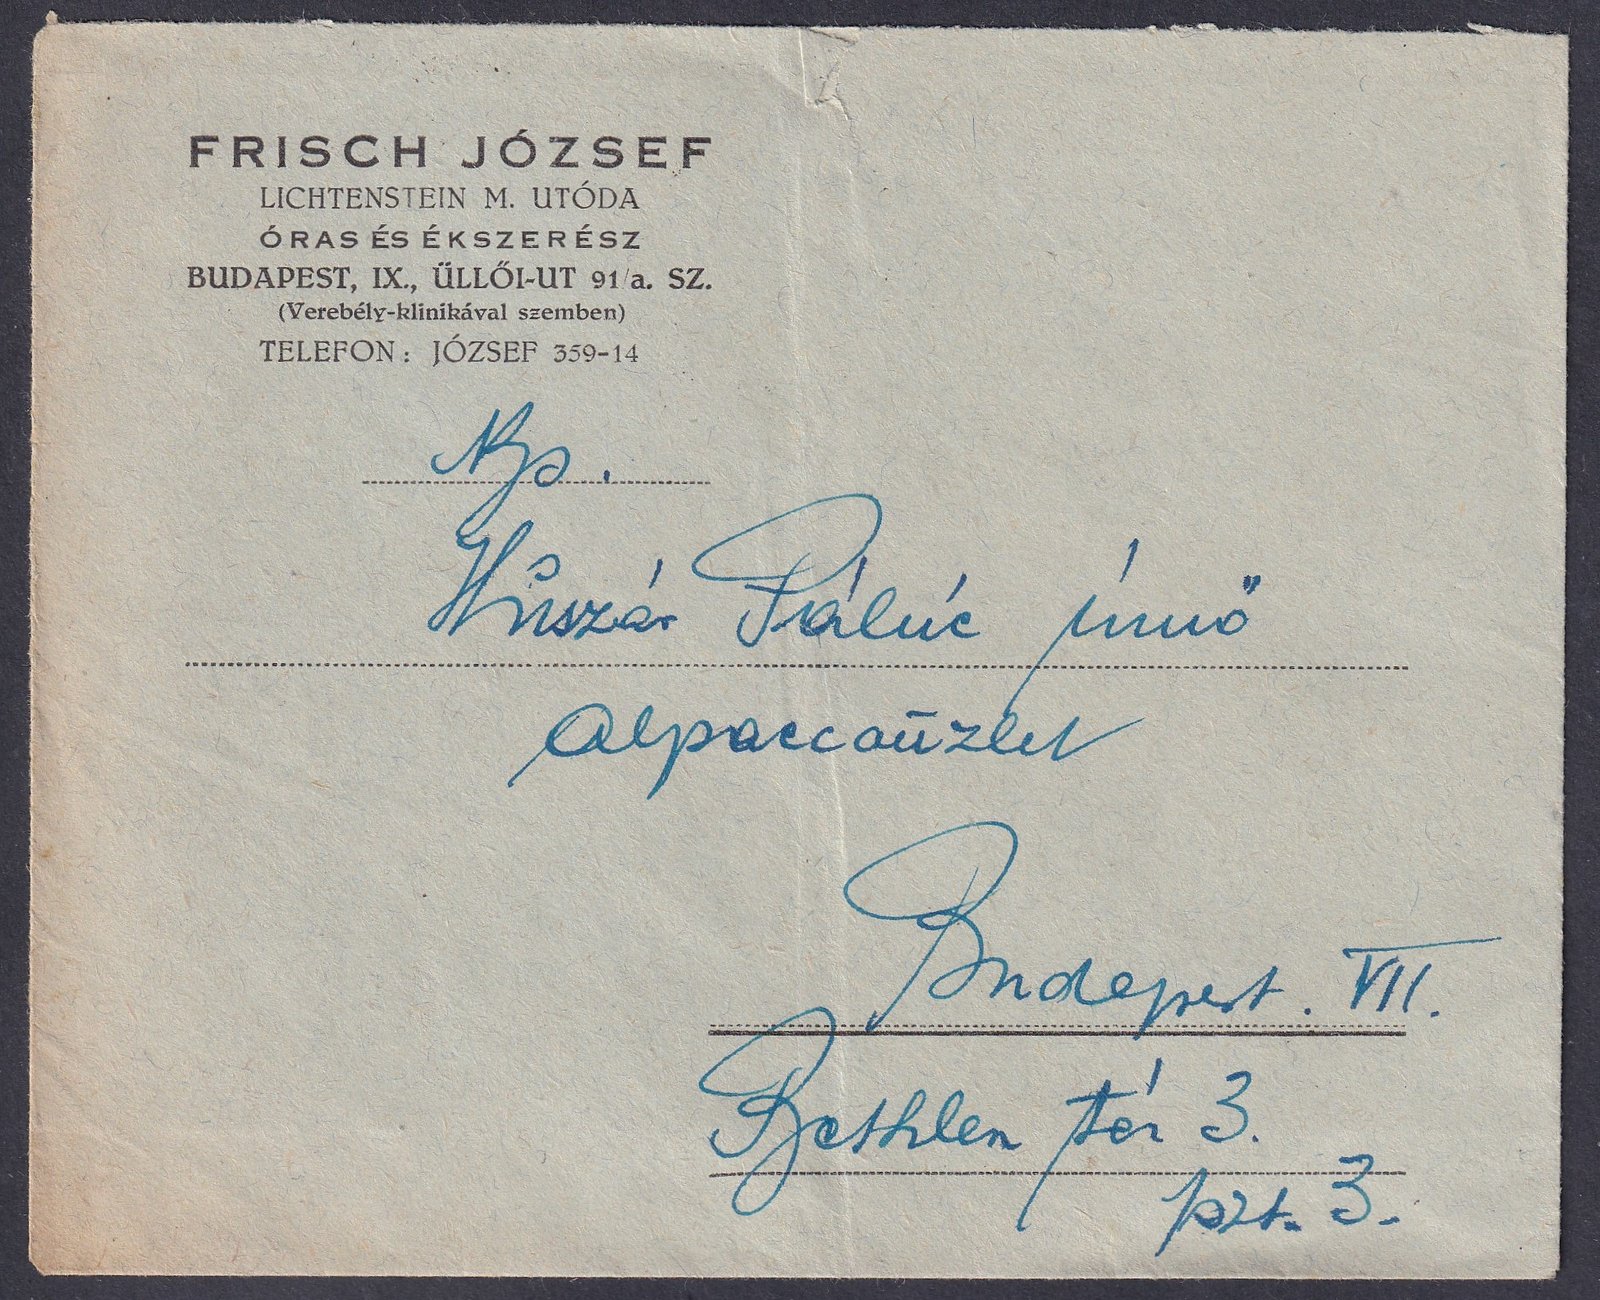 FRISCH JÓZSEF
LICHTENSTEIN M. UTÓDA
ÓRAS ÉS ÉKSZERÉSZ
BUDAPEST, IX., ÜLLŐI-UT 91/a. SZ.
(Verebély-klinikával szemben)
TELEFON: JÓZSEF 359-14
Huszár Pálné
alpaccaüzlet
Budapest. VII.
Bethlen tér 3.
pzt. 3.